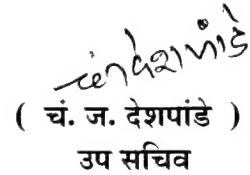 चंजदेशपांडे
( चं. ज. देशपांडे )
उप सचिव